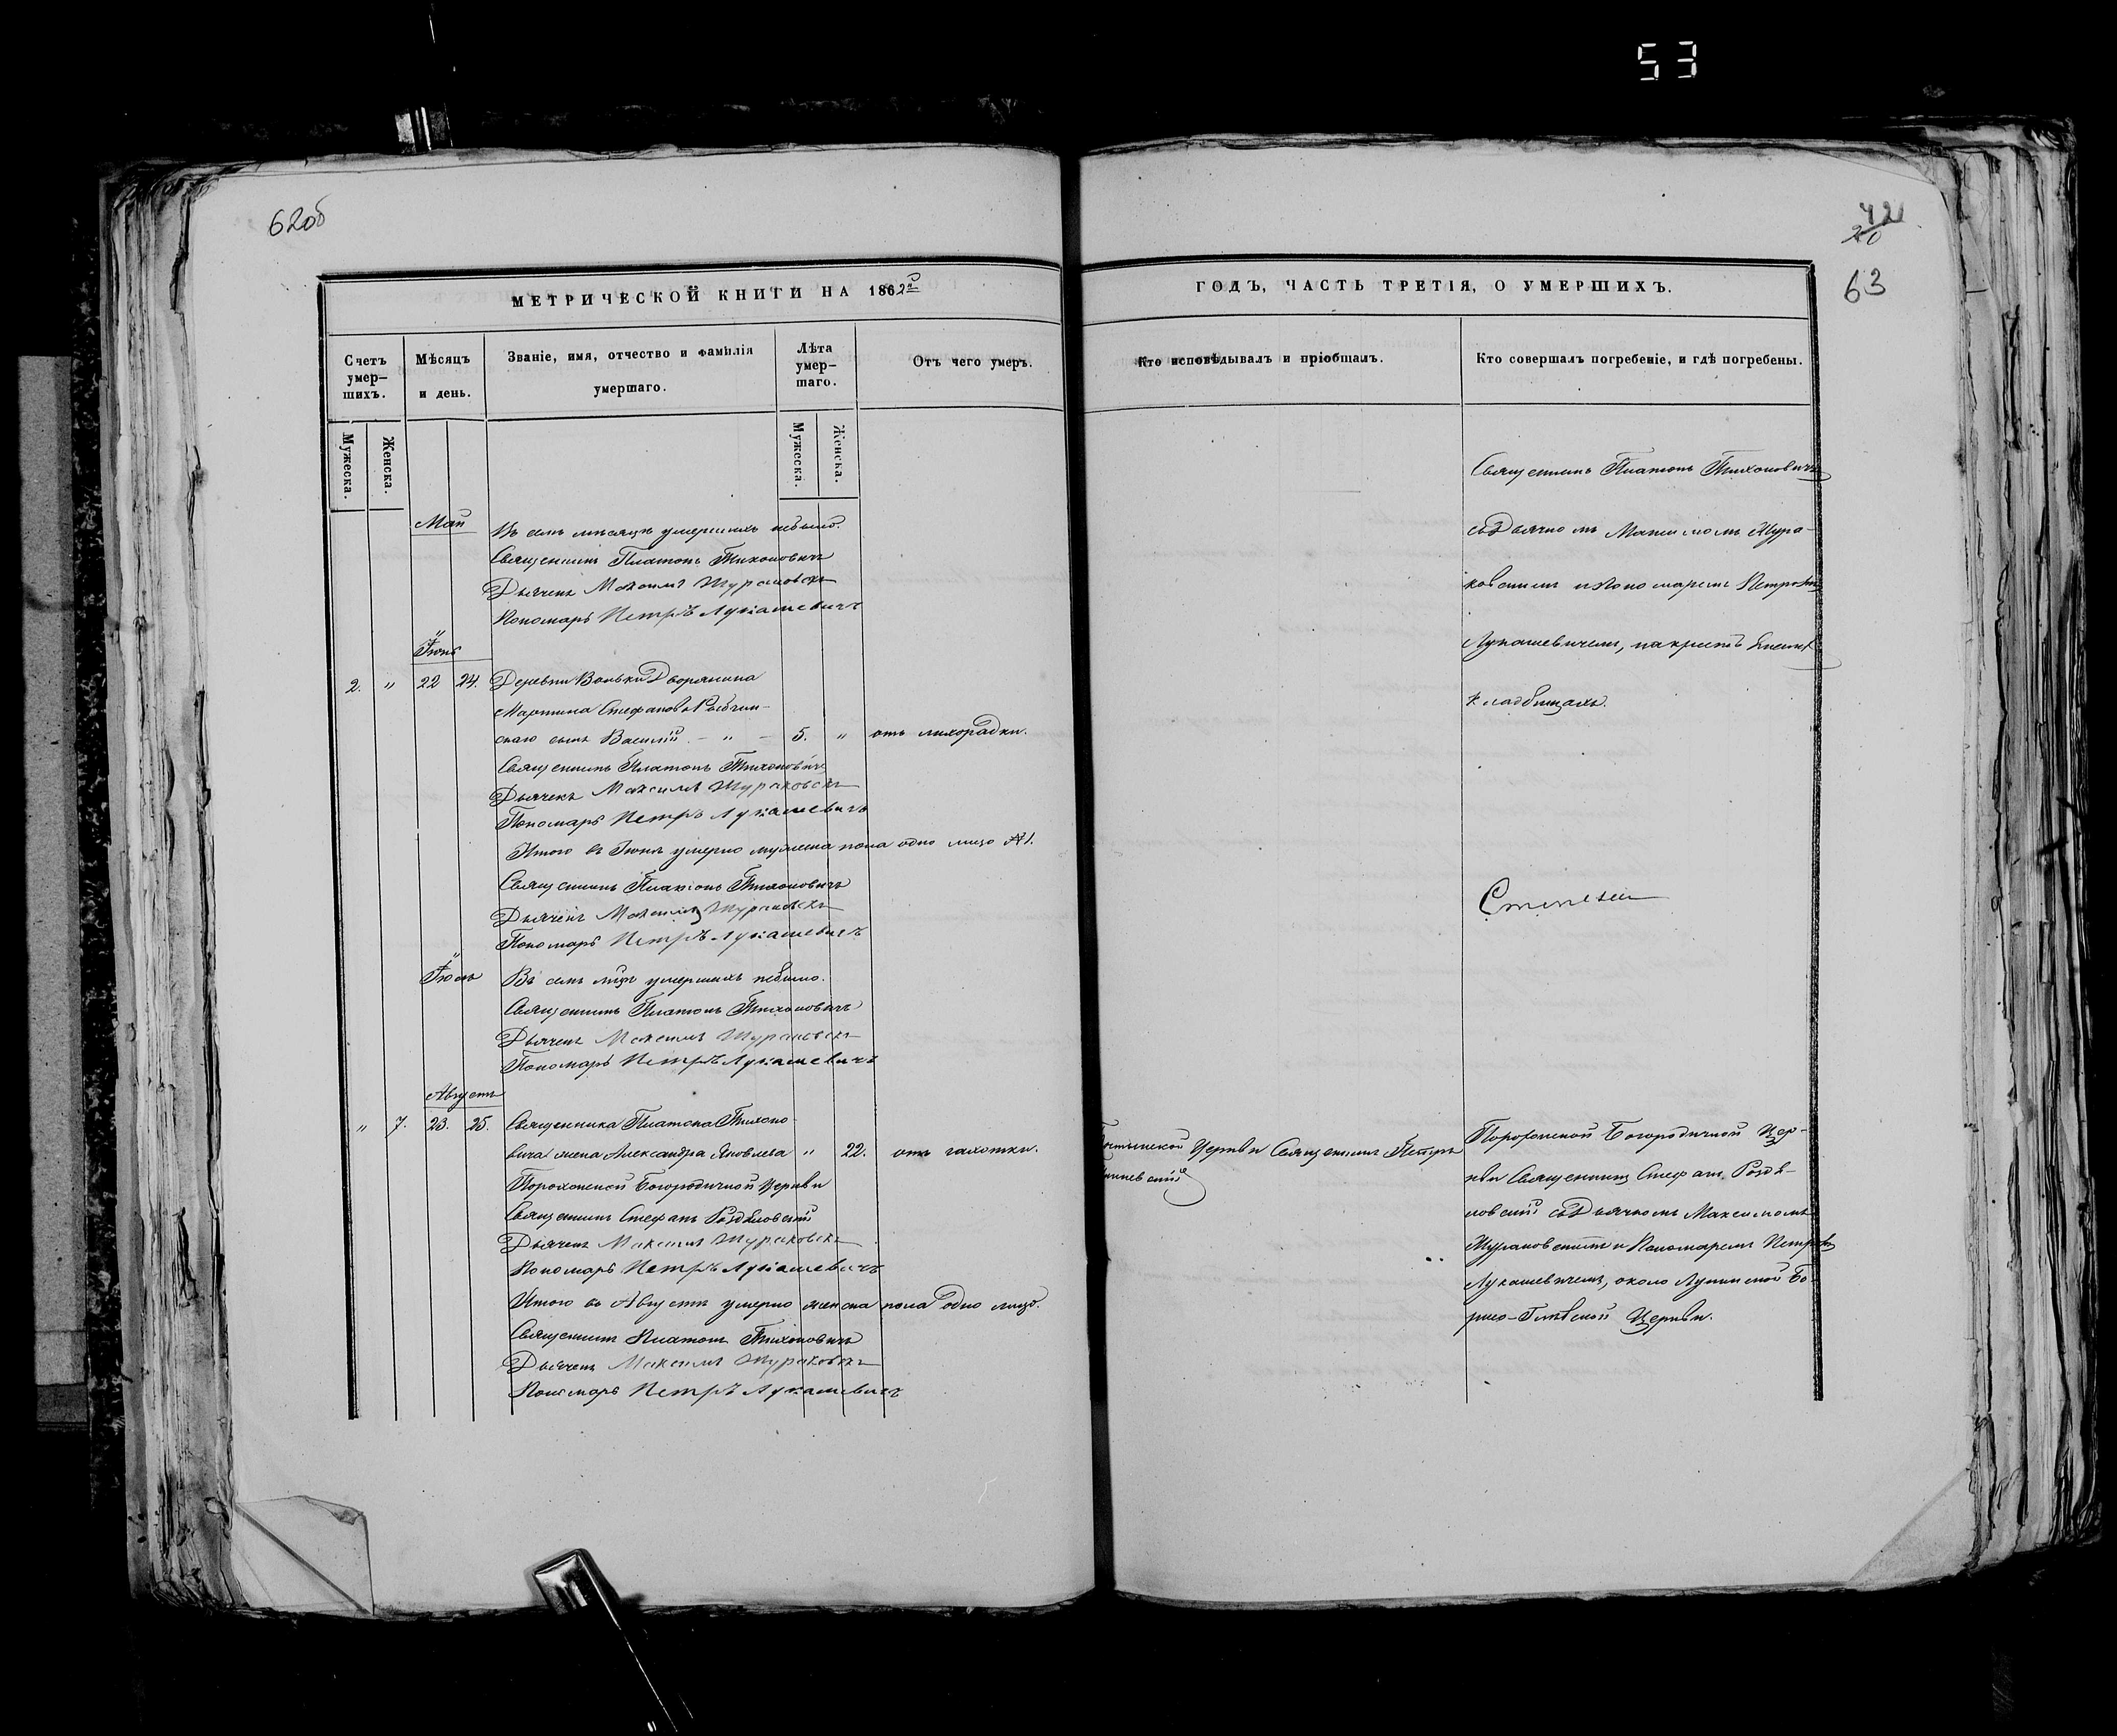 53
62об
42
20
63
МЕТРИЧЕСКОЙ КНИГИ НА 1862й
ГОДЪ, ЧАСТЬ ТРЕТІЯ, О УМЕРШИХЪ.
Счетъ умер-
шихъ.
Мѣсяцъ
и день.
Званіе, имя, отчество и фамилія
умершаго.
Лѣта
умер-
шаго.
Отъ чего умеръ.
Кто исповѣдывалъ и пріобщалъ.
Кто совершалъ погребеніе, и гдѣ погребены.
Мужеска.
Женска.
Мужеска.
Женска.
Май
Въ семъ мѣсяцѣ умершихъ небыло.
Священникъ Платонъ Тихоновичъ
Дьячекъ Максимъ Жураковскъ
Пономарь Петръ Лукашевичъ
Іюнь
2. " 22 24. Деревни Воньки Дворянина
Мартина Стефанова
скаго сынъ Василій - " - 5. " отъ лихорадки.
Священникъ Платонъ Тихоновичъ
Дьячекъ Максимъ Жураковскъ
Пономарь Петръ Лукашевичъ
Итого въ Іюнѣ умерло мужеска пола одно лицо №1.
Священникъ Платонъ Тихоновичъ
Дьячекъ Максимъ Жураковскъ
Пономарь Петръ Лукашевичъ
Іюль
Въ семъ мѣсяцѣ умершихъ небыло.
Священникъ Платонъ Тихоновичъ
Дьячекъ Максимъ Жураковскъ
Пономарь Петръ Лукашевичъ
Августъ
" 7. 23. 25. Священника Платона Тихоно
вича жена Александра Яковлева " 22. отъ чахотки.
Порохонской Богородичной Церкви
Священникъ Стефанъ Роздяловскій
Дьячекъ Максимъ Жураковскъ
Пономарь Петръ Лукашевичъ
Итого въ Августѣ умерло женска пола одно лицо.
Священникъ Платонъ Тихоновичъ
Дьячекъ Максимъ Жураковскъ
Пономарь Петръ Лукашевичъ
Священникъ Платонъ Тихоновичъ
съ Дьячкомъ Максимомъ Жура-
ковскимъ и Пономаремъ Петромъ
Лукашевичемъ, на
кладбищахъ.
Церкви Священникъ Петръ
Порохонской Богородичной Цер-
кви Священникъ Стефанъ Роздя-
ловскій съ Дьячкомъ Максимомъ
Жураковскимъ и Пономаремъ Петромъ
Лукашевичемъ, около Лунинской Бо-
рисо-Глѣбской Церкви.